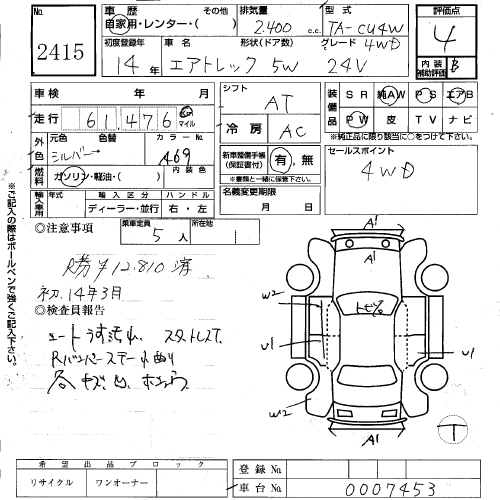 No. 2415
車歴 その他
自家用・レンター・( )
排気量 2,400 c.c.
型式 TA-CU4W
評価点 4
内装補助評価 B
初度登録年 14年
車名 エアトレック
形状(ドア数) 5W
グレード 4WD
24V
車検 年 月
走行 61,476 km マイル
シフト AT
冷房 AC
装備品 SR 純AW PS エアB
PW 皮 TV ナビ
※純正品に限り該当に○をつけて下さい。
外色 元色 シルバー 色替
カラーNo. A69
燃料 ガソリン・軽油・( )
内装色
新車整備手帳(保証書付) 有, 無
※書類と一緒に保管して下さい。
セールスポイント
4WD
輸入車用 年式 輸入区分 ディーラー・並行
ハンドル 右・左
名義変更期限
月 日
◎注意事項
乗車定員 5人
所在地 1
R勝¥12.810済
初.14年3月
◎検査員報告
シートうすき汚れ、スタットレス
Rバンパーステーれあり
各キズ凹
※ご記入の際はボールペンで強くご記入下さい。
A1
A1
W2
トビ石
U1
U1
W2
A1
T
希望出品ブロック
リサイクル ワンオーナー
登録No.
車台No. 0007453